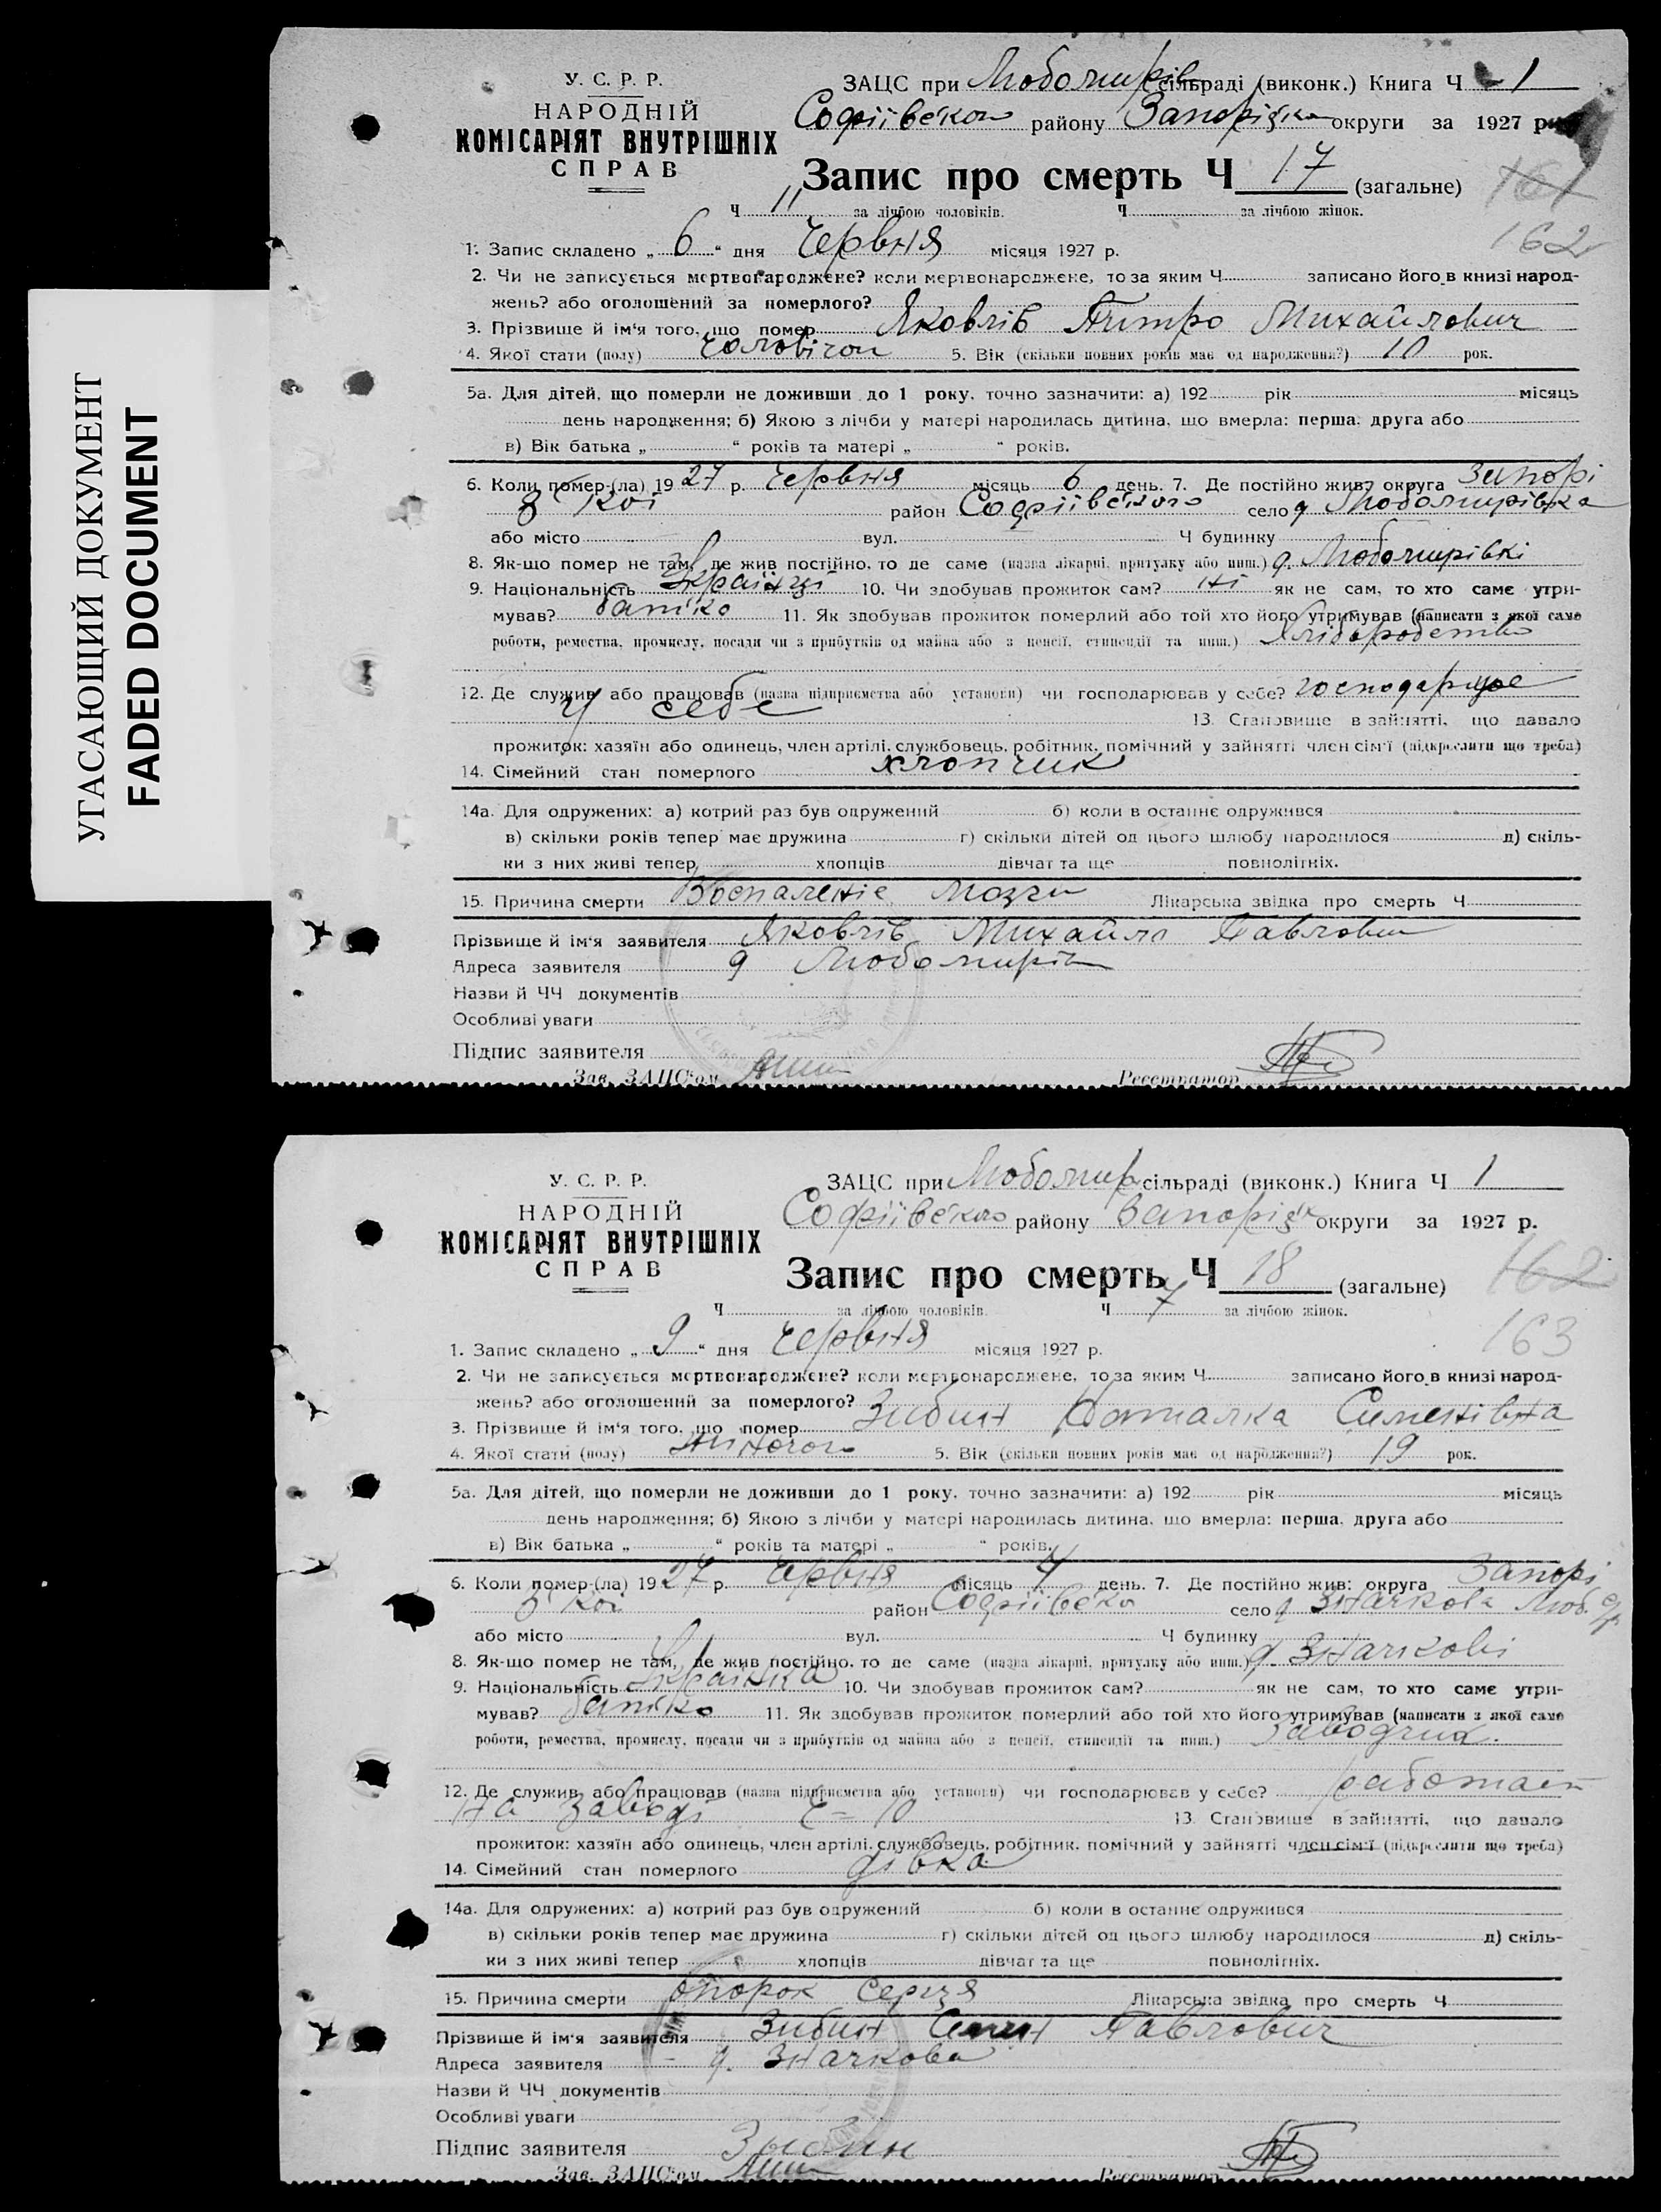 УГАСАЮЩИЙ ДОКУМЕНТ
FADED DOCUMENT
У. С. Р. Р.
НАРОДНІЙ
КОМІСАРІЯТ ВНУТРІШНІХ
СПРАВ
ЗАЦС при Любомирів сільраді (виконк.) Книга Ч 1
Софіївського району Запорізької округи за 1927 р.
Запис про смерть Ч 17 (загальне)
161
162
Ч 11 за лічбою чоловіків. Ч за лічбою жінок.
1. Запис складено „ 6 “ дня Червня місяця 1927 р.
2. Чи не записується мертвонароджене? коли мертвонароджене, то за яким Ч записано його в книзі народ-
жень? або оголошений за померлого?
3. Прізвище й ім'я того, що помер Яковлів Дмитро Михайлович
4. Якої стати (полу) чоловічои 5. Вік (скільки повних років має од народження?) 10 рок.
5а. Для дітей, що померли не доживши до 1 року, точно зазначити: а) 192 рік місяць
день народження; б) Якою з лічби у матері народилась дитина, що вмерла: перша, друга або
в) Вік батька „ “ років та матері „ “ років.
6. Коли помер-(ла) 1927 р. Червня місяць 6 день. 7. Де постійно жив: округа Запорі
зької район Софіївського село д Любомирівка
або місто вул. Ч будинку
8. Як-що помер не там, де жив постійно, то де саме (назва лікарні, притулку або инш.) д. Любомирівкі
9. Національність Україці 10. Чи здобував прожиток сам? ні як не сам, то хто саме утри-
мував? батько 11. Як здобував прожиток померлий або той хто його утримував (написати з якої саме
роботи, ремества, промислу, посади чи з прибутків од майна або з пенсії, стипендії та инш.) Хліборобство
12. Де служив або працював (назва підприємства або установи) чи господарював у себе? господарює
у себе 13. Становище в зайнятті, що давало
прожиток: хазяїн або одинець, член артілі, службовець, робітник, помічний у зайнятті член сім'ї (підкреслити що треба)
14. Сімейний стан померлого хлопчик
14а. Для одружених: а) котрий раз був одружений б) коли в останнє одружився
в) скільки років тепер має дружина г) скільки дітей од цього шлюбу народилося д) скіль-
ки з них живі тепер хлопців дівчат та ще повнолітніх.
15. Причина смерти Воспаление мозги Лікарська звідка про смерть Ч
Прізвище й ім'я заявителя Яковлів Михайло Павлович
Адреса заявителя д Любомирів
Назви й ЧЧ документів
Особливі уваги
Підпис заявителя
Зав. ЗАЦС'ом Реєстратор
У. С. Р. Р.
НАРОДНІЙ
КОМІСАРІЯТ ВНУТРІШНІХ
СПРАВ
ЗАЦС при Любомир сільраді (виконк.) Книга Ч 1
Софіївського району Запорізьк округи за 1927 р.
Запис про смерть Ч 18 (загальне)
162
163
Ч за лічбою чоловіків. Ч 7 за лічбою жінок.
1. Запис складено „ 9 “ дня Червня місяця 1927 р.
2. Чи не записується мертвонароджене? коли мертвонароджене, то за яким Ч записано його в книзі народ-
жень? або оголошений за померлого?
3. Прізвище й ім'я того, що помер Зибин Наталка Сименівна
4. Якої стати (полу) жіночои 5. Вік (скільки повних років має од народження?) 19 рок.
5а. Для дітей, що померли не доживши до 1 року, точно зазначити: а) 192 рік місяць
день народження; б) Якою з лічби у матері народилась дитина, що вмерла: перша, друга або
в) Вік батька „ “ років та матері „ “ років.
6. Коли помер-(ла) 1927 р. Червня місяць день. 7. Де постійно жив: округа Запорі
зької район Софіївсько село д Значкова Люб. с/р
або місто вул. Ч будинку
8. Як-що помер не там, де жив постійно, то де саме (назва лікарні, притулку або инш.) д. Значкові
9. Національність Українка 10. Чи здобував прожиток сам? як не сам, то хто саме утри-
мував? батько 11. Як здобував прожиток померлий або той хто його утримував (написати з якої саме
роботи, ремества, промислу, посади чи з прибутків од майна або з пенсії, стипендії та инш.) Заводчик.
12. Де служив або працював (назва підприємства або установи) чи господарював у себе? работает
на заводі 10 13. Становище в зайнятті, що давало
прожиток: хазяїн або одинець, член артілі, службовець, робітник, помічний у зайнятті член сім'ї (підкреслити що треба)
14. Сімейний стан померлого дівка
14а. Для одружених: а) котрий раз був одружений б) коли в останнє одружився
в) скільки років тепер має дружина г) скільки дітей од цього шлюбу народилося д) скіль-
ки з них живі тепер хлопців дівчат та ще повнолітніх.
15. Причина смерти опорок серця Лікарська звідка про смерть Ч
Прізвище й ім'я заявителя Зибин Павлович
Адреса заявителя д. Значкова
Назви й ЧЧ документів
Особливі уваги
Підпис заявителя Зыбин
Зав. ЗАЦС'ом Реєстратор